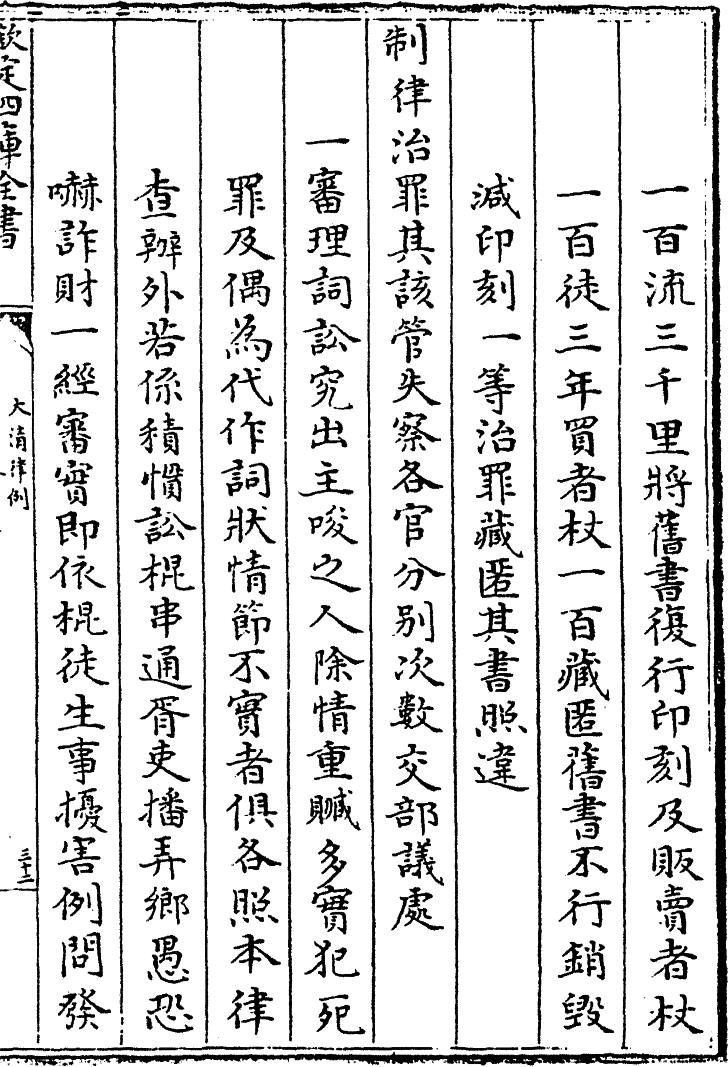 一百流三千里將舊書復行印刻及販賣者杖
一百徒三年買者杖一百藏匿舊書不行銷毀
減印刻一等治罪藏匿其書照違
制律治罪其該管失察各官分別次數交部議處
一審理詞訟究出主唆之人除情重贓多實犯死
罪及偶為代作詞狀情節不實者俱各照本律
查辦外若係積慣訟棍串通胥吏播弄鄉愚恐
嚇詐財一經審實即依棍徒生事擾害例問發
欽定四庫全書
大清律例
三十二